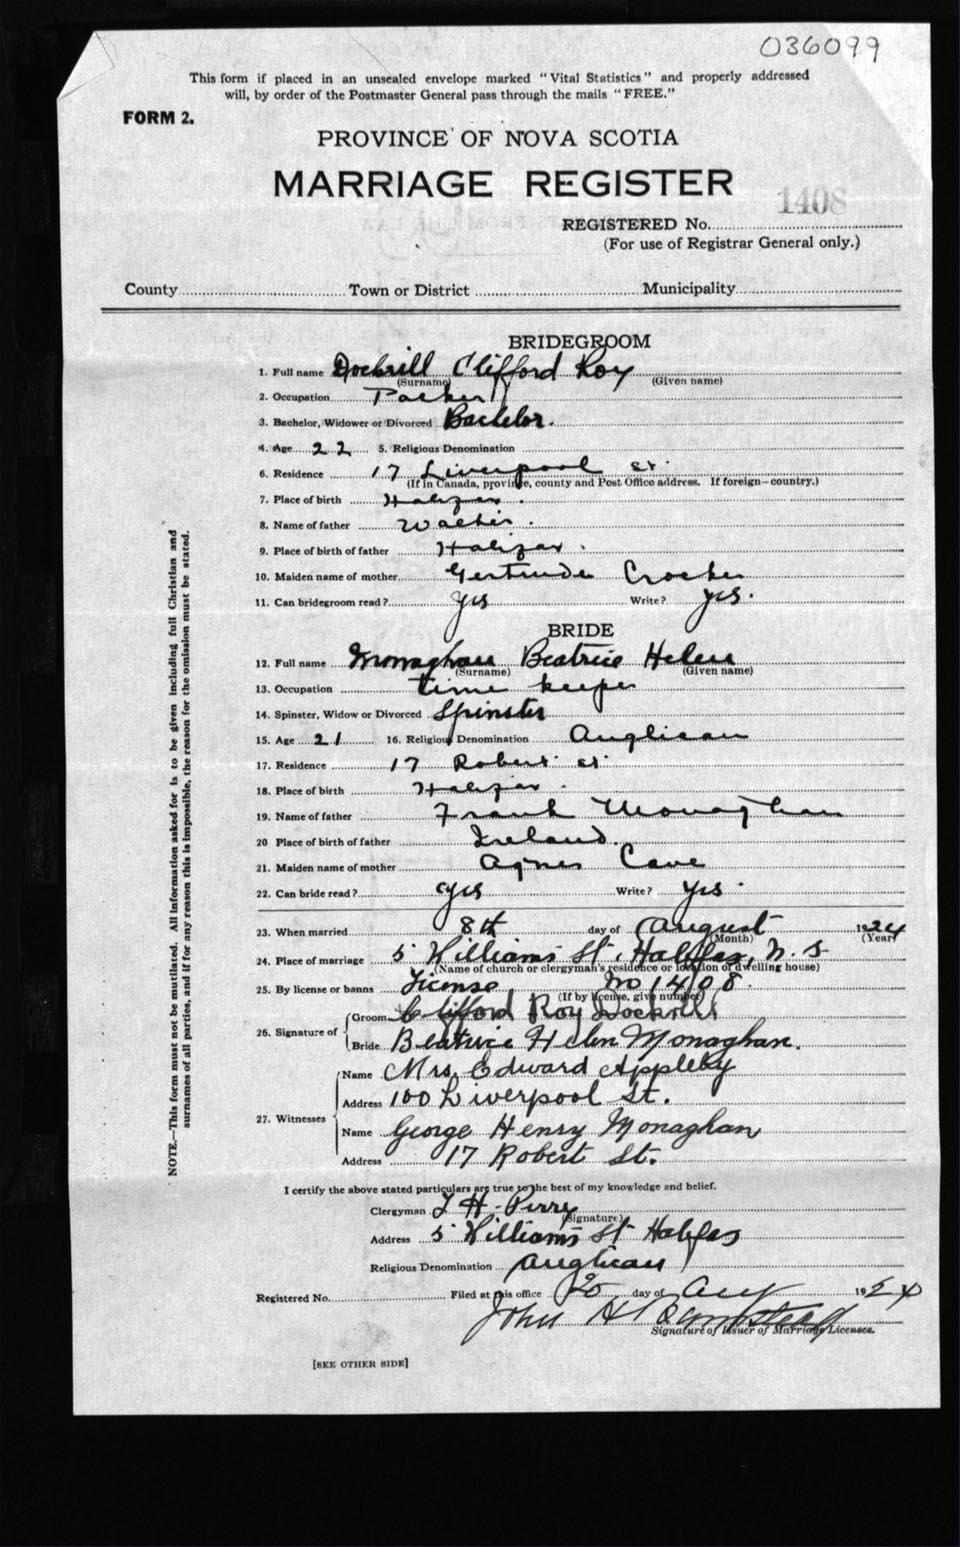 036099
This form if placed in an unsealed envelope marked "Vital Statistics" and properly addressed
will, by order of the Postmaster General pass through the mails "FREE."
FORM 2.
PROVINCE OF NOVA SCOTIA
MARRIAGE REGISTER
1408
REGISTERED No.
(For use of Registrar General only.)
County Town or District Municipality
BRIDEGROOM
1. Full name Dockrill Clifford Roy
(Surname) (Given name)
2. Occupation Packer
3. Bachelor, Widower or Divorced Bachelor.
4. Age 22 5. Religious Denomination
6. Residence 17 Liverpool st.
(If in Canada, province, county and Post Office address. If foreign-country.)
7. Place of birth Halifax.
8. Name of father Walter.
9. Place of birth of father Halifax.
10. Maiden name of mother Gertrude Crocker
11. Can bridegroom read? yes Write? yes.
BRIDE
12. Full name Monaghan Beatrice Helen
(Surname) (Given name)
13. Occupation time keeper
14. Spinster, Widow or Divorced Spinster
15. Age 21 16. Religious Denomination Anglican
17. Residence 17 Robert st.
18. Place of birth Halifax.
19. Name of father Frank Monaghan
20 Place of birth of father Ireland.
21. Maiden name of mother Agnes Cave
22. Can bride read? yes Write? yes.
23. When married 8th day of August 1924
(Month) (Year)
24. Place of marriage 5 Williams St. Halifax, N.S
(Name of church or clergyman's residence or location of dwelling house)
25. By license or banns License No 1408.
(If by license, give number)
26. Signature of
Groom Clifford Roy Dockrill
Bride Beatrice Helen Monaghan.
27. Witnesses
Name Mrs. Edward Appleby
Address 100 Liverpool St.
Name George Henry Monaghan
Address 17 Robert St.
I certify the above stated particulars are true to the best of my knowledge and belief.
Clergyman T H. Perry
(Signature)
Address 5 Williams St Halifax
Religious Denomination Anglican
Registered No. Filed at this office 20 day of Aug 1924
John H
Signature of Issuer of Marriage Licenses.
[SEE OTHER SIDE]
NOTE.—This form must not be mutilated. All information asked for is to be given including full Christian and
surnames of all parties, and if for any reason this is impossible, the reason for the omission must be stated.